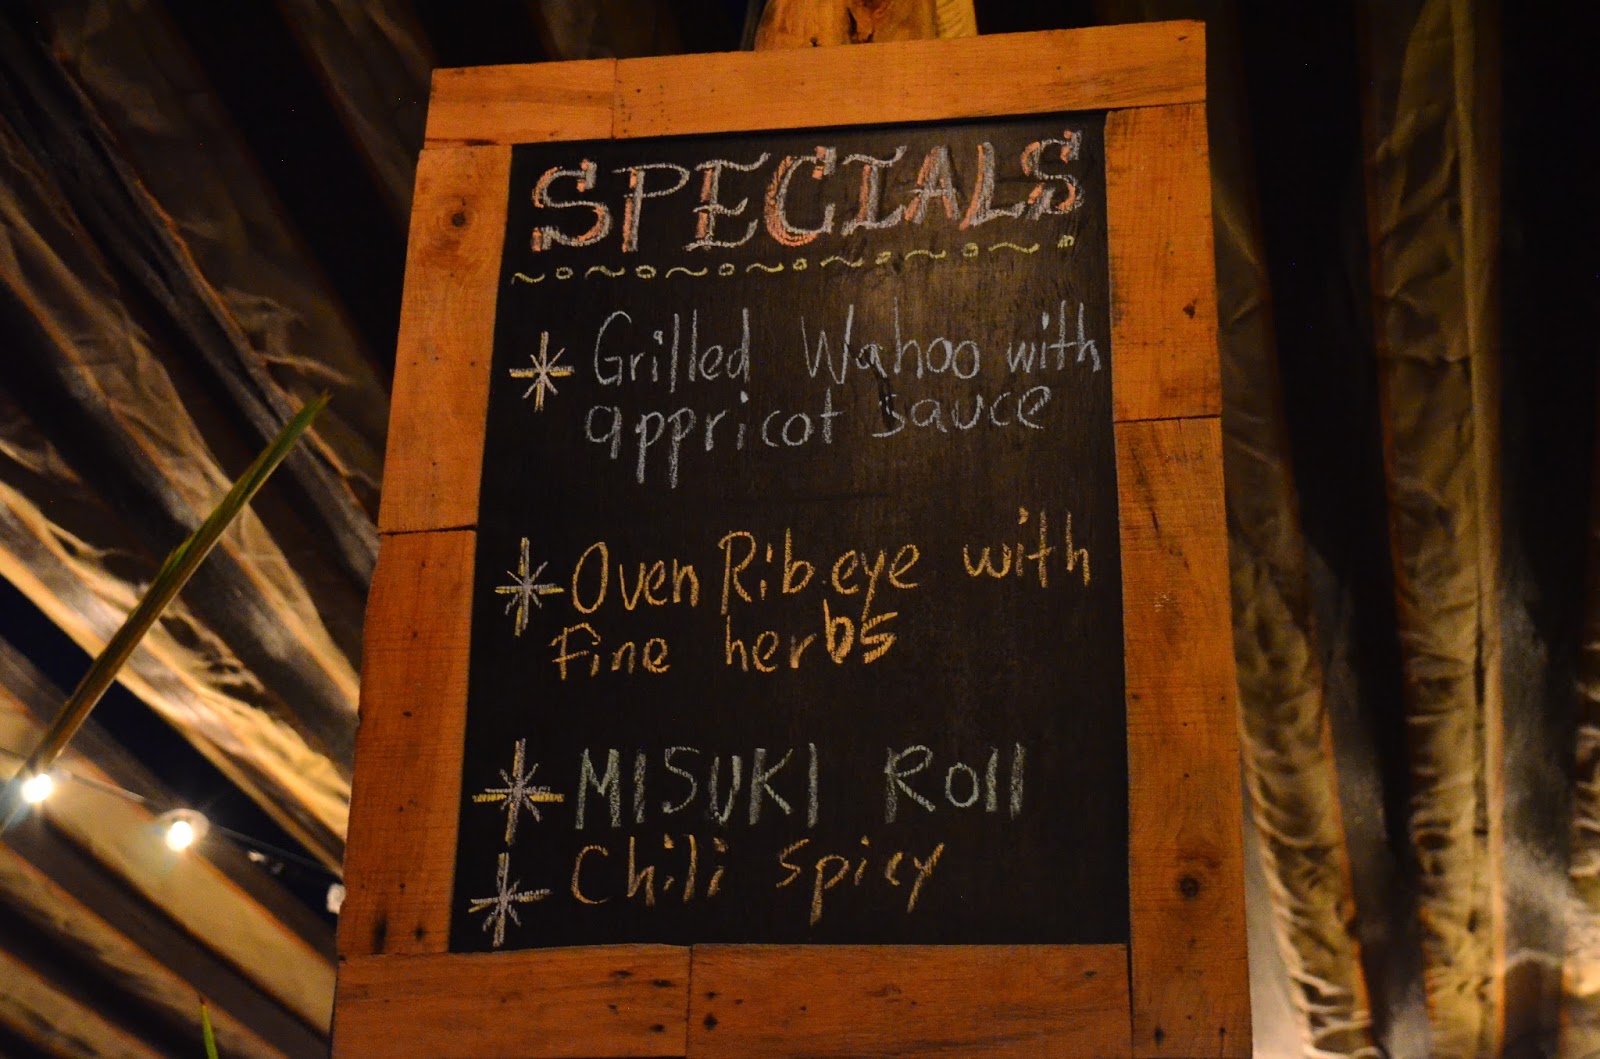 SPECIALS
Grilled Wahoo with
appricot sauce
Oven Rib.eye with
Fine herbs
MISUKI Roll
Chili spicy